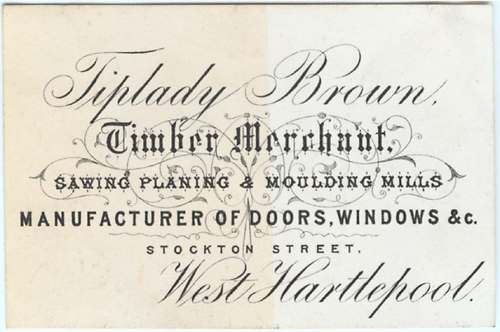 Tiplady Brown.
Timber Merchant,
SAWING PLANING & MOULDING MILLS
MANUFACTURER OF DOORS, WINDOWS &c.
STOCKTON STREET,
West Hartlepool.